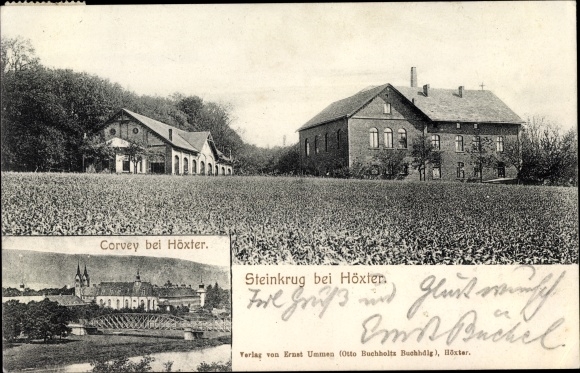 Corvey bei Höxter.
Steinkrug bei Höxter.
Gruß und Glückwünsch
Ernst Büchel
Verlag von Ernst Ummen (Otto Buchholtz Buchhdlg), Höxter.